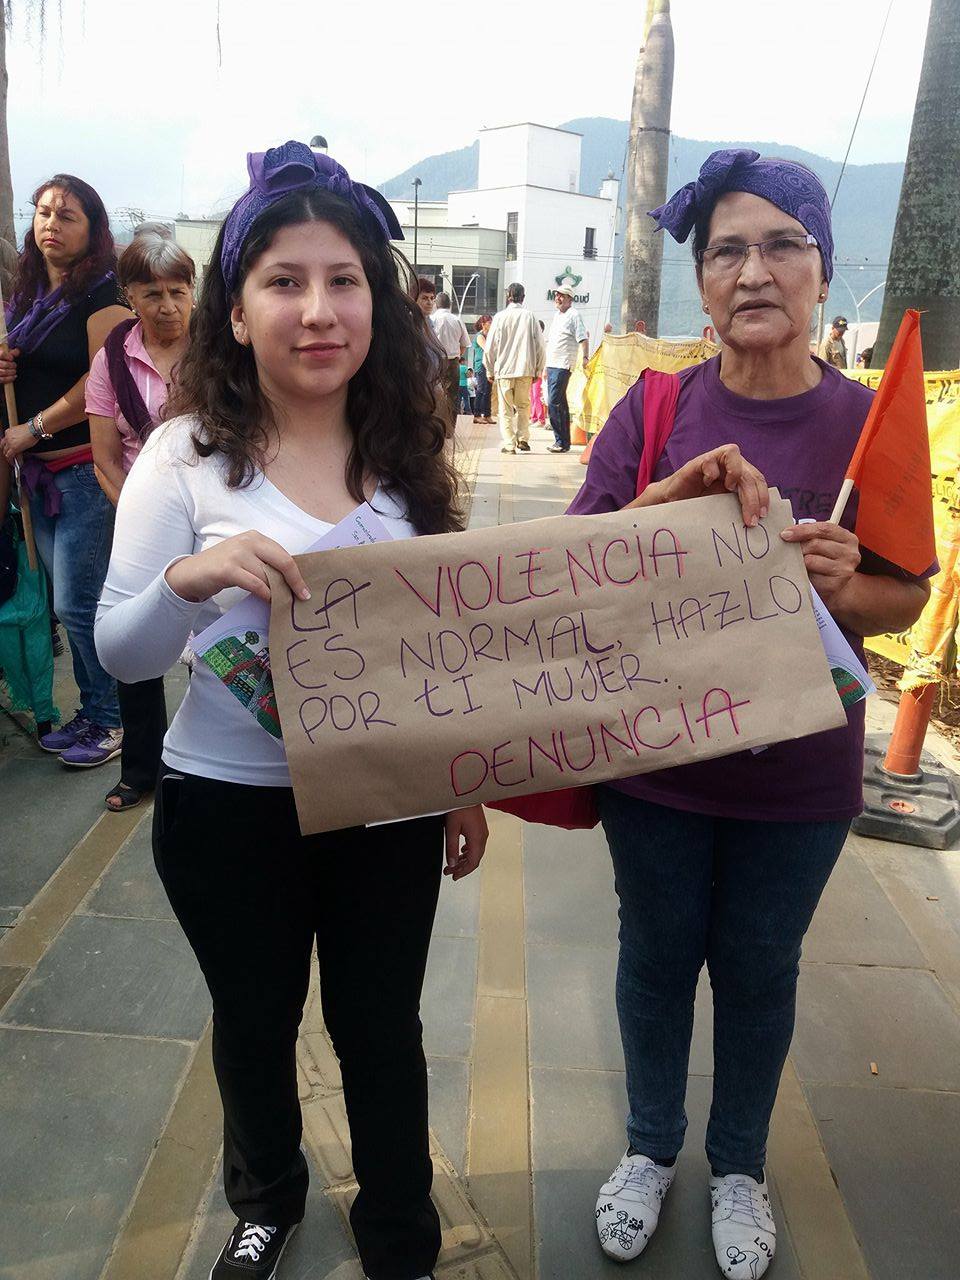 LA VIOLENCIA NO
ES NORMAL, HAZLO
POR tI MUJER.
DENUNCIA
LOVE
LOVE